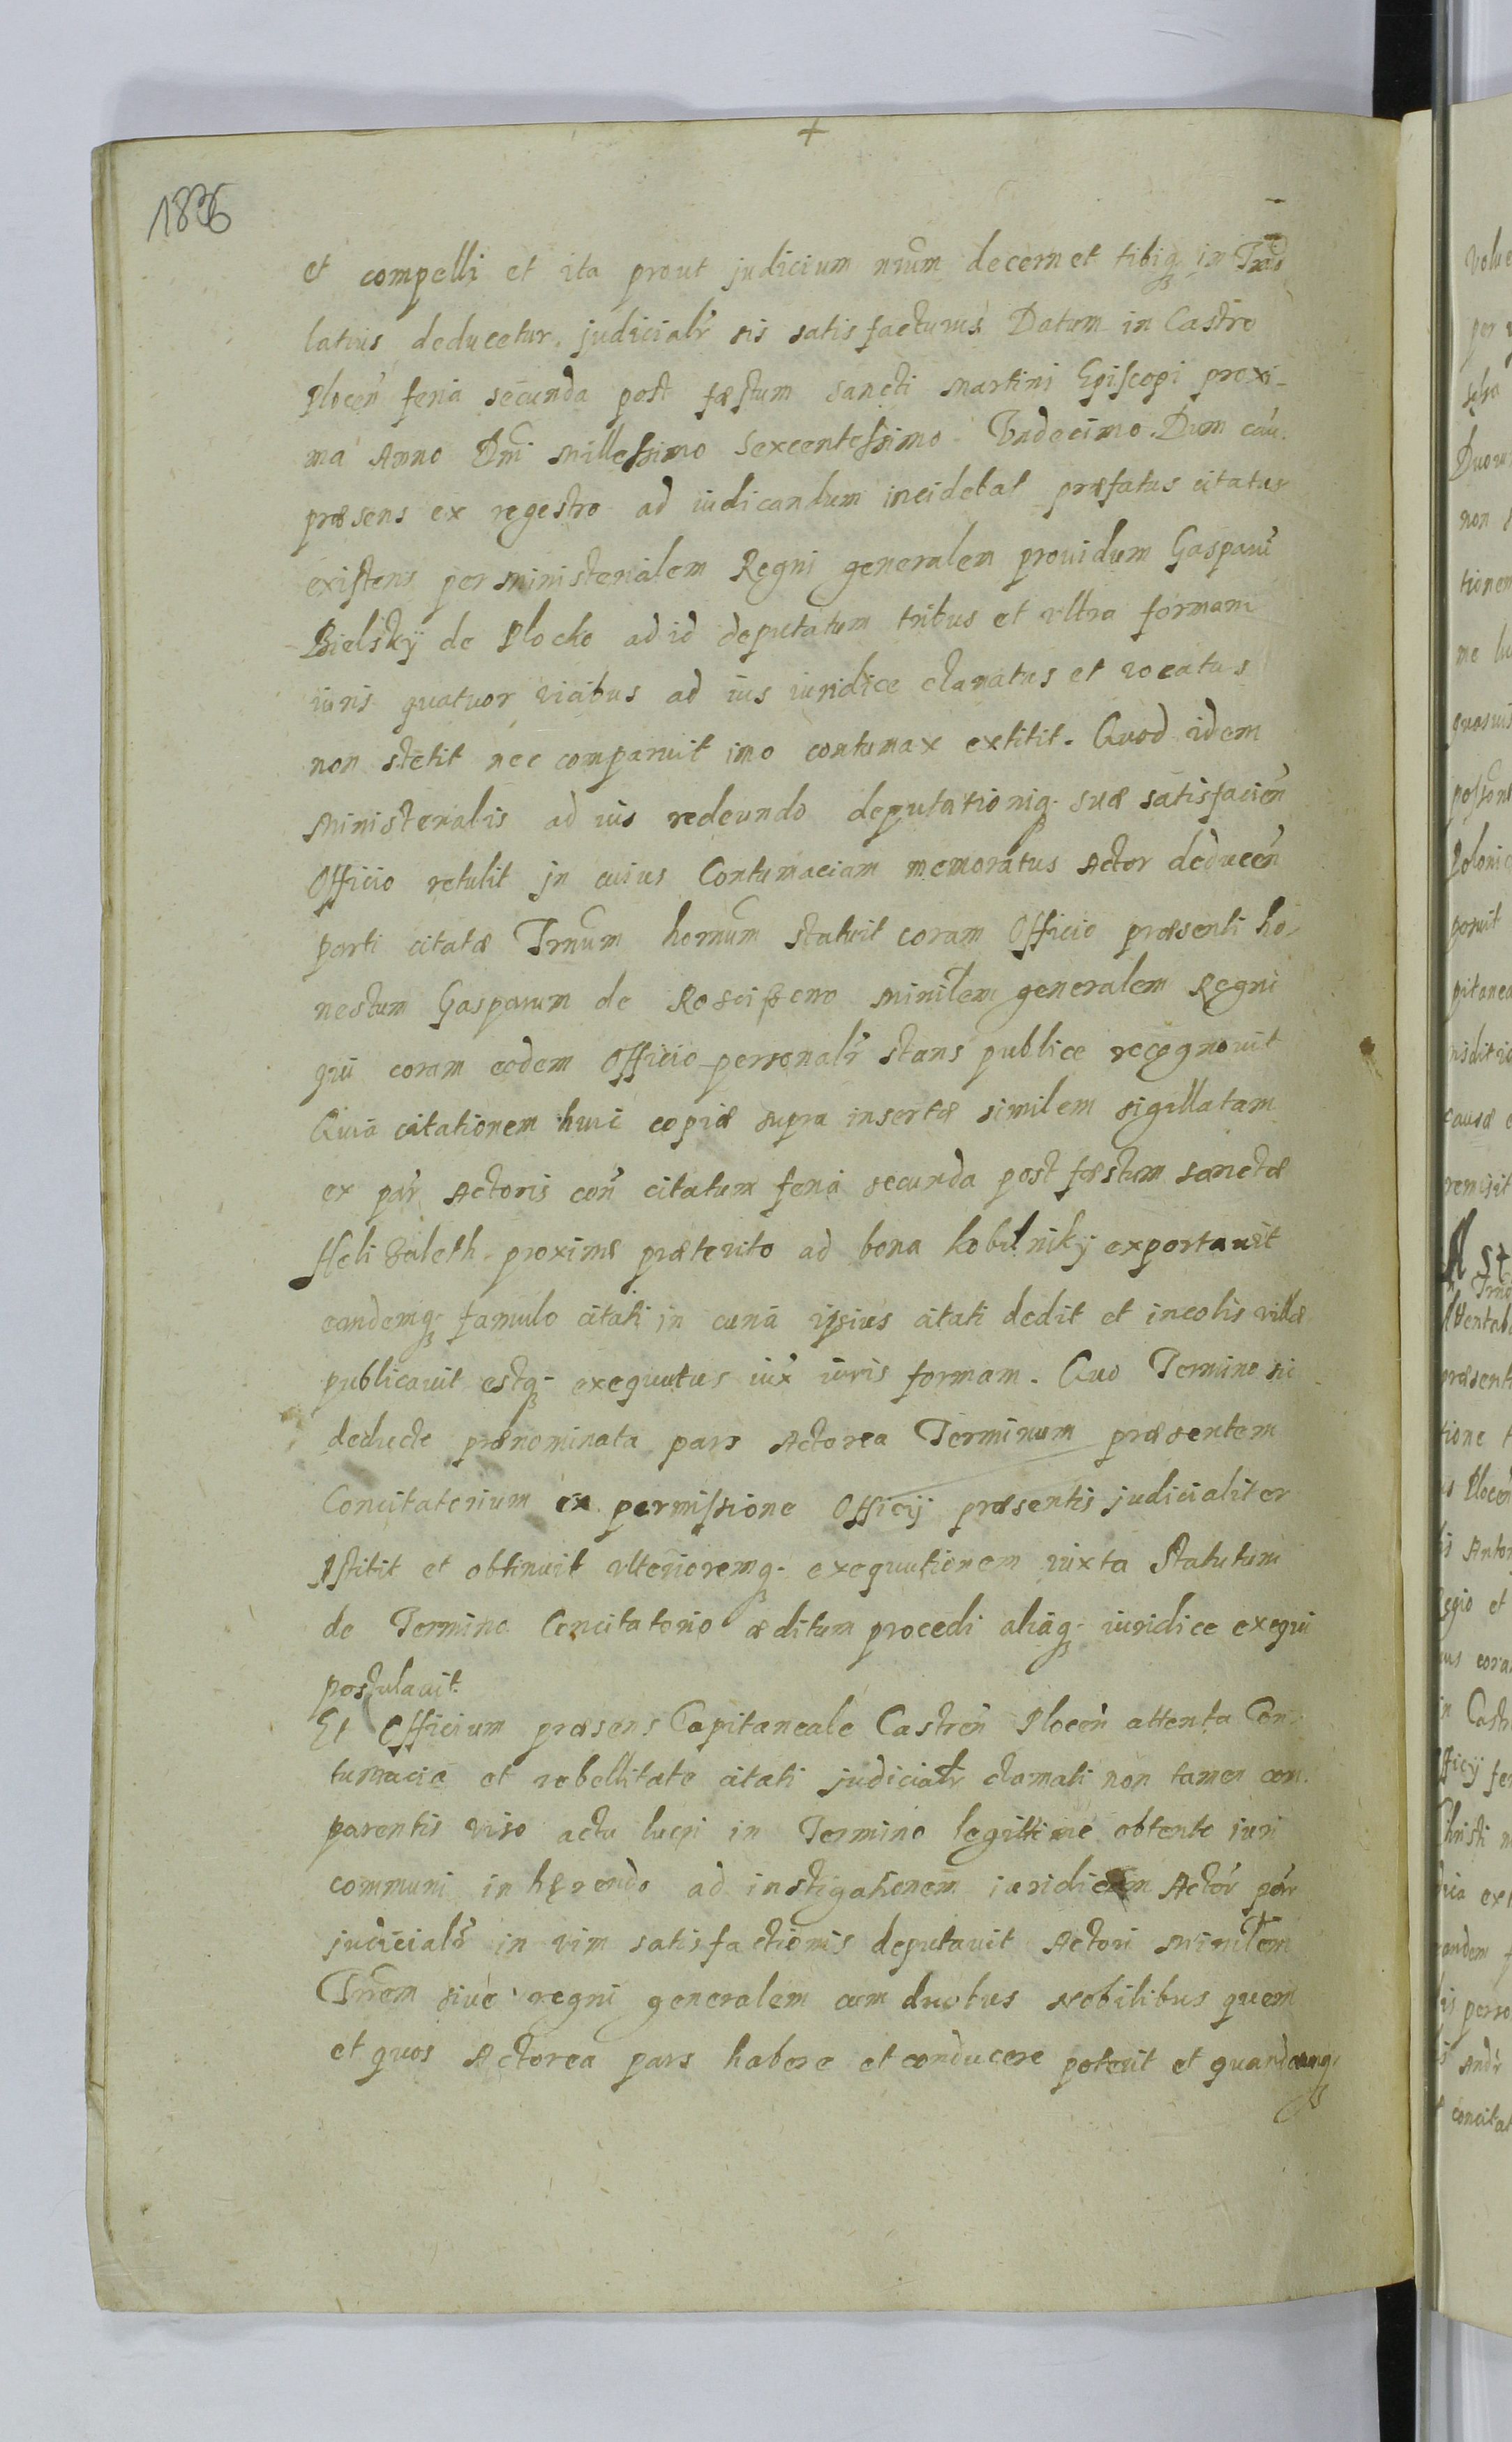 +
1836
et compelli et ita prout judicium nrum decernet tibiq. in Trno
latius deducetur. judicialr sis satisfacturus Datum in Castro
Plocen feria secunda post fæstum sancti Martini Episcopi proxi-
ma Anno Dni Millessimo Sexcentessimo Vndecimo. Dum cau.
præsens ex regestro ad iudicandum incidebat præfatus citatus
existens per Ministerialem Regni generalem prouidum Gasparu
Bielsky de Plocko ad id deputatum tribus et vltra formam
iuris quatuor vicibus ad ius iuridice clamatus et vocatus
non stetit nec comparuit imo contumax extitit. Quod idem
Ministerialis ad ius redeundo deputationiq. suæ satisfacien
Officio retulit in cuius Contumaciam memoratus Actor deducen
parti citatæ Trnum hornum statuit coram Officio præsenti ho-
nestum Gasparum de Rosciszeno Ministlem generalem Regni
qui coram eodem Officio personalr stans publice recognouit
Quia citationem huic copiæ supra insertæ similem sigillatam
ex par Actoris con citatum feria secunda post fæstum sanctæ
Helizabeth proxime præterito ad bona Kobilniky exportauit
eandemq. famulo citati in curia ipsius citati dedit et incolis villæ
publicauit estq. exequutus iux iuris formam. Quo Termino sic
deducto prænominata pars Actorea Terminum præsentem
Concitatorium ex permissione Officij præsentis judicialiter
Astitit et obtinuit vlterioremq. exequutionem iuxta Statutum
de Termino Concitatorio æditum procedi aliaq. iuridice exequi
postulauit.
Et Officium præsens Capitaneale Castren Plocen attenta Con-
tumacia et rebellitate citati judicialr clamati non tamen com-
parentis viso actu lucri in Termino legittime obtento iuri
communi inhærendo ad instigationem iuridicam Actor par
judicialr in vim satisfactionis deputauit Actori Ministlem
Trrem siue regni generalem cum duobus Nobilibus quem
et quos Actorea pars habere et conducere poterit et quandocunq.